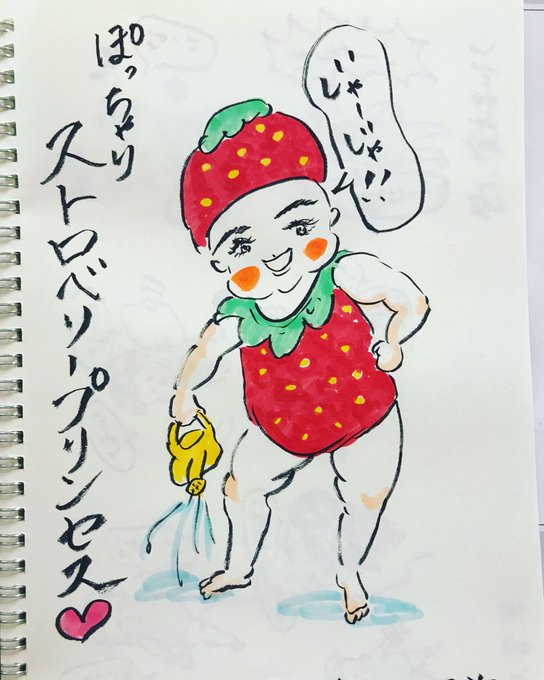 ぽっちゃり
ストロベリープリンセス
じゃーじゃー!!